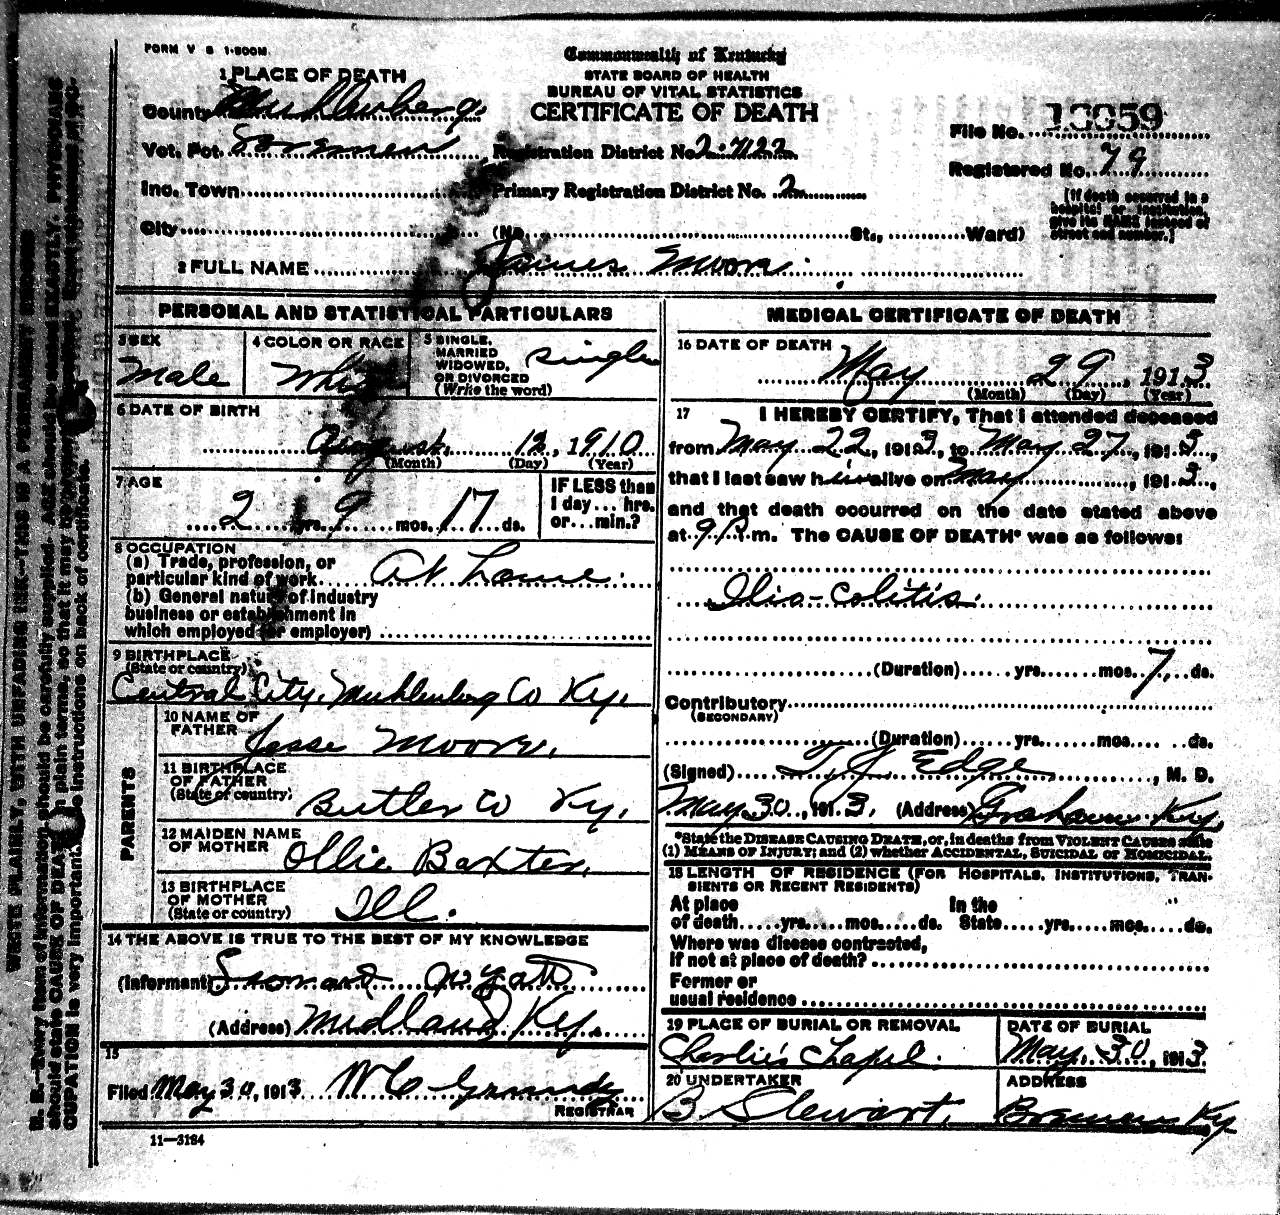 FORM V S 1-500M.
Commonwealth of Kentucky
STATE BOARD OF HEALTH
BUREAU OF VITAL STATISTICS
CERTIFICATE OF DEATH
1 PLACE OF DEATH
County Muhlenberg
Vot. Pct.
Inc. Town
City (No. St., Ward)
Registration District No. 2-7122
Primary Registration District No. 2
File No. 13059
Registered No. 79
[If death occurred in a hospital or institution, give its NAME instead of street and number.]
2 FULL NAME James Moore
PERSONAL AND STATISTICAL PARTICULARS
3 SEX
Male
4 COLOR OR RACE
White
5 SINGLE, MARRIED WIDOWED, OR DIVORCED
(Write the word)
Single
6 DATE OF BIRTH
August 12, 1910
(Month) (Day) (Year)
7 AGE
2 yrs. 9 mos. 17 ds.
IF LESS than
1 day... hrs.
or...min.?
8 OCCUPATION
(a) Trade, profession, or
particular kind of work At home
(b) General nature of industry
business or establishment in
which employed (or employer)
9 BIRTHPLACE
(State or country)
Central City, Muhlenberg Co Ky.
PARENTS
10 NAME OF
FATHER
Jesse Moore,
11 BIRTHPLACE
OF FATHER
(State or country)
Butler Co Ky.
12 MAIDEN NAME
OF MOTHER
Ollie Baxter,
13 BIRTHPLACE
OF MOTHER
(State or country)
Ill.
14 THE ABOVE IS TRUE TO THE BEST OF MY KNOWLEDGE
(Informant) Wyatt
(Address) Midland Ky.
15
Filed May 30, 1913 W C Grundy
REGISTRAR
11—3184
MEDICAL CERTIFICATE OF DEATH
16 DATE OF DEATH
May 29, 1913
(Month) (Day) (Year)
17 I HEREBY CERTIFY, That I attended deceased
from May 22, 1913, to May 27, 1913,
that I last saw him alive on May , 1913,
and that death occurred on the date stated above
at 9 P.m. The CAUSE OF DEATH* was as follows:
Ilio-Colitis.
(Duration) yrs. mos. 7 ds.
Contributory
(SECONDARY)
(Duration) yrs. mos. ds.
(Signed) T. J. Edge, M. D.
May 30, 1913. (Address) Graham Ky.
*State the DISEASE CAUSING DEATH, or, in deaths from VIOLENT CAUSES state
(1) MEANS OF INJURY; and (2) whether ACCIDENTAL, SUICIDAL or HOMICIDAL.
18 LENGTH OF RESIDENCE (FOR HOSPITALS, INSTITUTIONS, TRAN-
SIENTS OR RECENT RESIDENTS)
At place In the
of death yrs. mos. ds. State yrs. mos. ds.
Where was disease contracted,
if not at place of death?
Former or
usual residence
19 PLACE OF BURIAL OR REMOVAL
Charlie's Chapel.
DATE OF BURIAL
May, 30, 1913.
20 UNDERTAKER
B. Stewart,
ADDRESS
Ky
N. B.—Every item of information should be carefully supplied. AGE should be stated EXACTLY. PHYSICIANS
should state CAUSE OF DEATH in plain terms, so that it may be
CUPATION is very important. See instructions on back of certificate.
WRITE PLAINLY, WITH UNFADING INK—THIS IS A PERMANENT RECORD